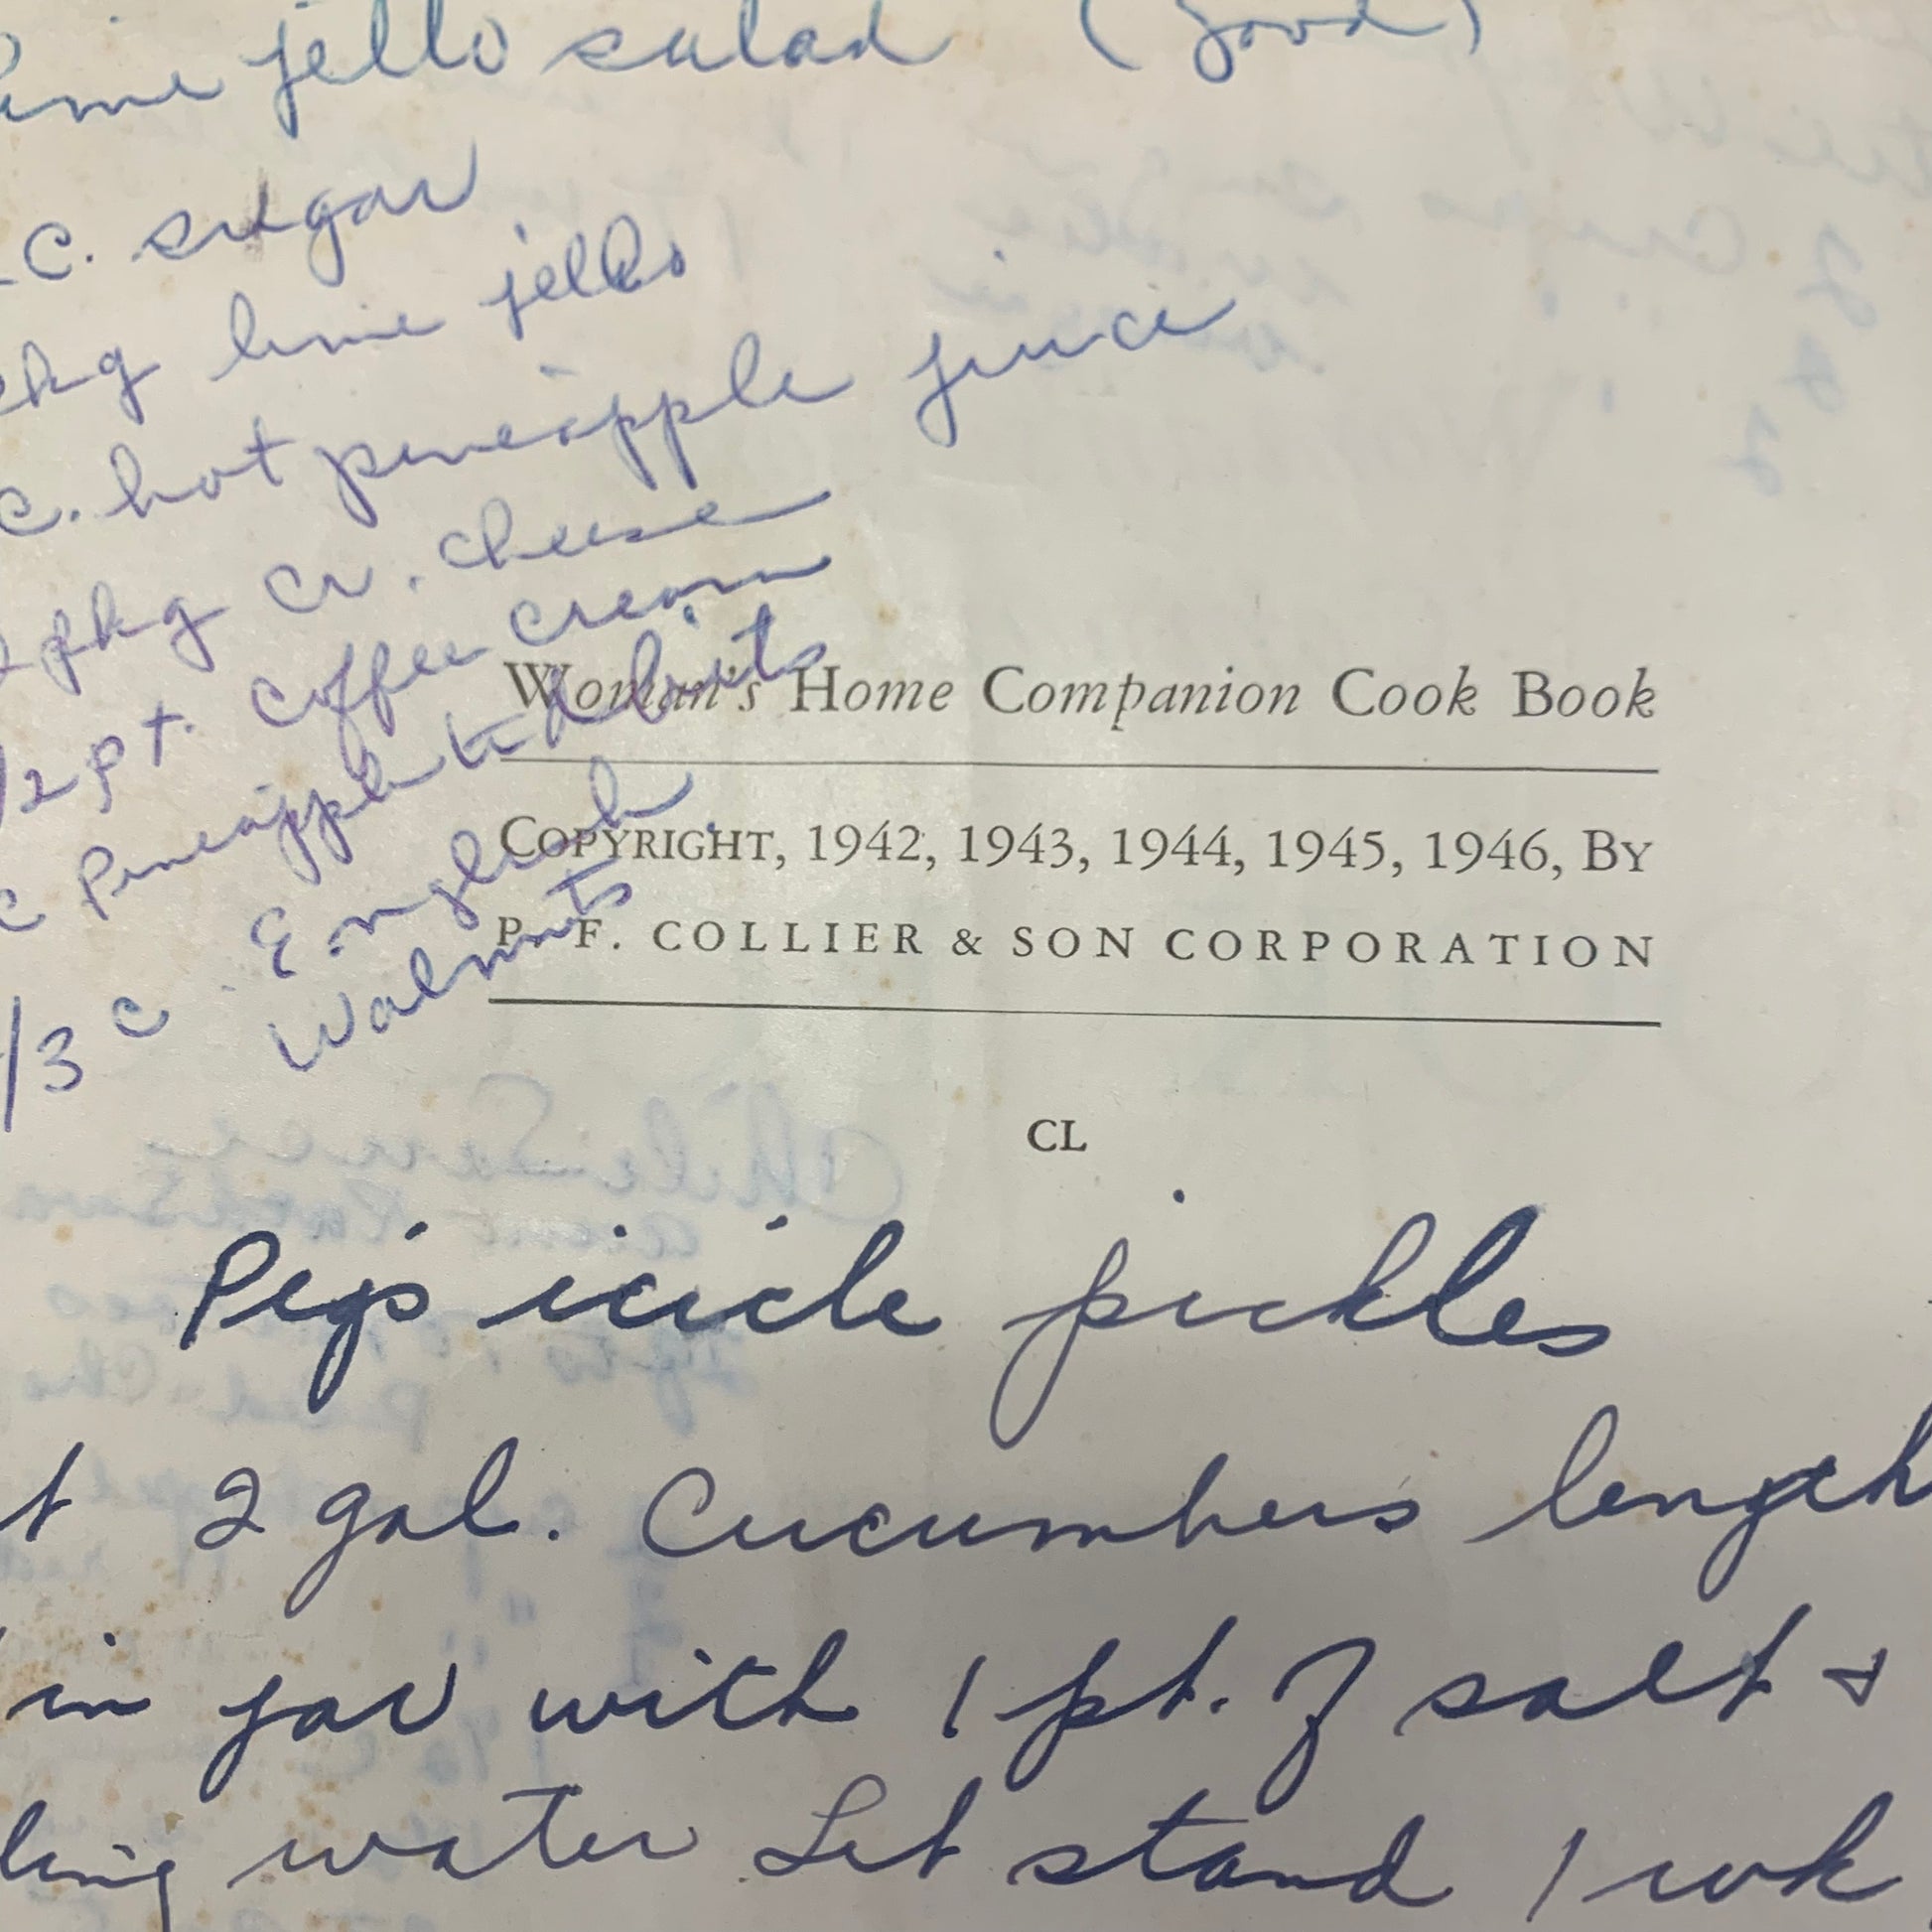 Lime jello salad (good)
C. sugar
pkg lime jello
C. hot pineapple juice
2 pkg cr. cheese
1/2 pt. coffee cream
C Pineapple tidbits
1/3 c. English
Walnuts
Woman's Home Companion Cook Book
COPYRIGHT, 1942, 1943, 1944, 1945, 1946, BY
P. F. COLLIER & SON CORPORATION
CL
Peg's icicle pickles
2 gal. Cucumbers length
in jar with 1 pt. of salt &
ling water Let stand 1 wk